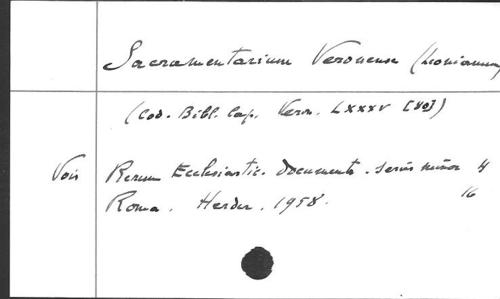 Sacramentarium Veronense (Leonianum)
(Cod. Bibl. Cap. Veron. LXXXV [80])
Vois Rerum Ecclesiastic. documenta. series minor 4
Roma. Herder. 1958. 16